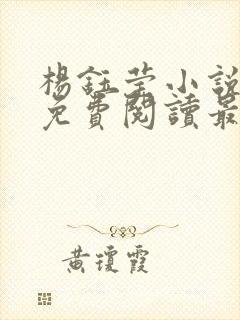 楊鈺莹小說
免費閱讀最
黃瓊霞